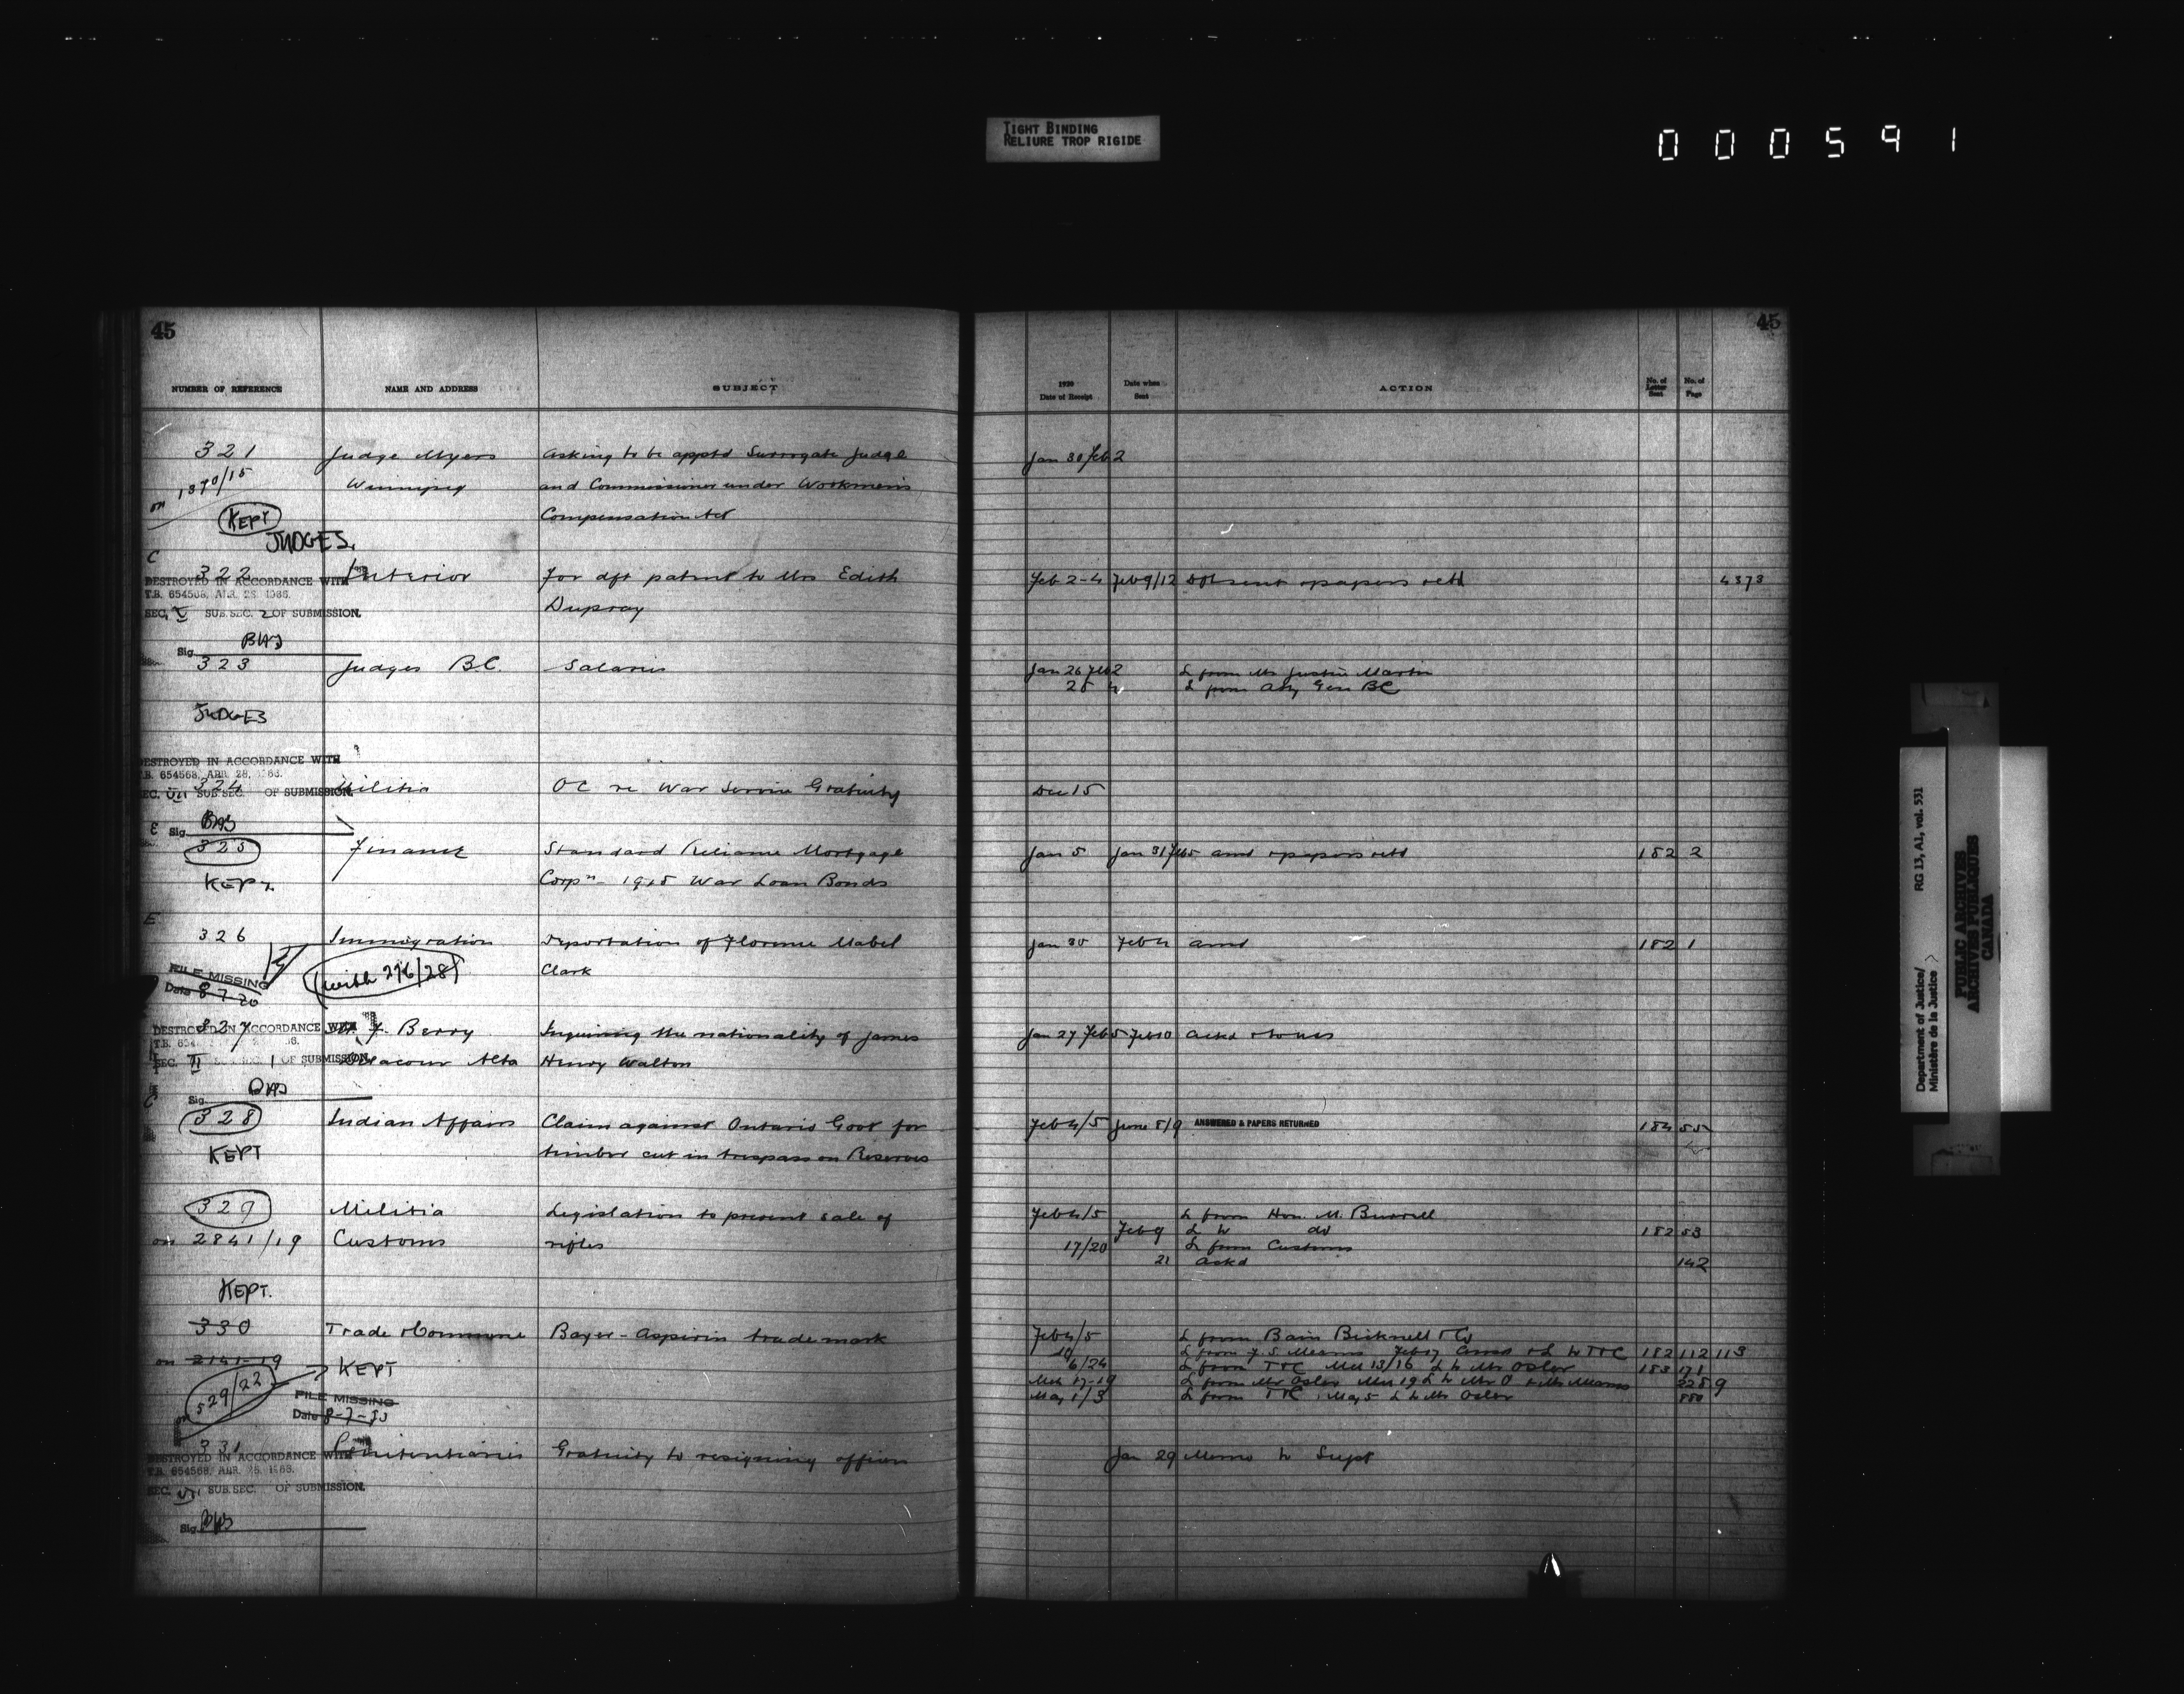 TIGHT BINDING
RELIURE TROP RIGIDE
000591
45
NUMBER OF REFERENCE NAME AND ADDRESS SUBJECT
321 Judge Myers Asking to be apptd Surrogate Judge
on 1370/15 Winnipeg and Commissioner under Workmen's
KEPT Compensation Act
JUDGES.
C
322 Interior For dft patent to Mrs Edith
DESTROYED IN ACCORDANCE WITH
T.B. 654568, ABR. 28, 1966.
SEC. V SUB.SEC. 2 OF SUBMISSION. Dupray
Sig. BHS
323 Judges B.C. Salaries
JUDGES
DESTROYED IN ACCORDANCE WITH
T.B. 654568, ABR. 28, 1966.
324 Militia OC re War Service Gratuity
SEC. VII SUB.SEC. OF SUBMISSION.
E Sig. BHS
325 Finance Standard Reliance Mortgage
KEPT. Corpn - 1925 War Loan Bonds
E
326 Immigration Deportation of Florence Mabel
(with 276/28) Clark
FILE MISSING
Date 8-7-20
327 Berry Inquiring the nationality of James
DESTROYED IN ACCORDANCE WITH
SEC. II 1 OF SUBMISSION. Delacour Alta Henry Walton
Sig.
C
328 Indian Affairs Claim against Ontario Govt for
KEPT timber cut in trespass on Reserves
329 Militia Legislation to prevent sale of
on 2841/19 Customs rifles
KEPT.
330 Trade & Commerce Bayer - Aspirin trade mark
on 2141-19 KEPT
on 529/22
FILE MISSING
Date 8-7-
331 Penitentiaries Gratuity to resigning officers
DESTROYED IN ACCORDANCE WITH
T.B. 654568, ABR. 28, 1966.
SEC. VII SUB.SEC. OF SUBMISSION.
Sig. BHS
45
1920 Date of Receipt Date when Sent ACTION No. of Letter Sent No. of Page
Jan 30 Feb 2
Feb 2-4 Feb 9/12 Dft sent & papers retd 4373
Jan 26 Feb 2 L from Mr Justice Martin
28 4 L from Atty Gen BC
Dec 15
Jan 5 Jan 31 Feb 5 and & papers retd 182 2
Jan 30 Feb 4 and 182 1
Jan 27 Feb 5 Feb 10 Ackd
Feb 4/5 June 8/9 ANSWERED & PAPERS RETURNED 184 55
Feb 4/5 L from Hon. M. Burrell
Feb 9 L to do 182 53
17/20 L from Customs
21 Ackd 142
Feb 4/5 L from Bain Bicknell & Co
10 L from F. S. Mearns Feb 17 & L to T&C 182 112 113
6/24 L from T&C Mch 13/16 L to Mr Osler 183 171
Mch 17-19 L from Mr Osler Mch 19 L to Mr O & Mr Mearns 228 9
May 1/3 L from T&C, May 5 L to Mr Osler 880
Jan 29 Memo to Supt
Department of Justice/ RG 13, A1, vol. 531
Ministère de la Justice
PUBLIC ARCHIVES
ARCHIVES PUBLIQUES
CANADA